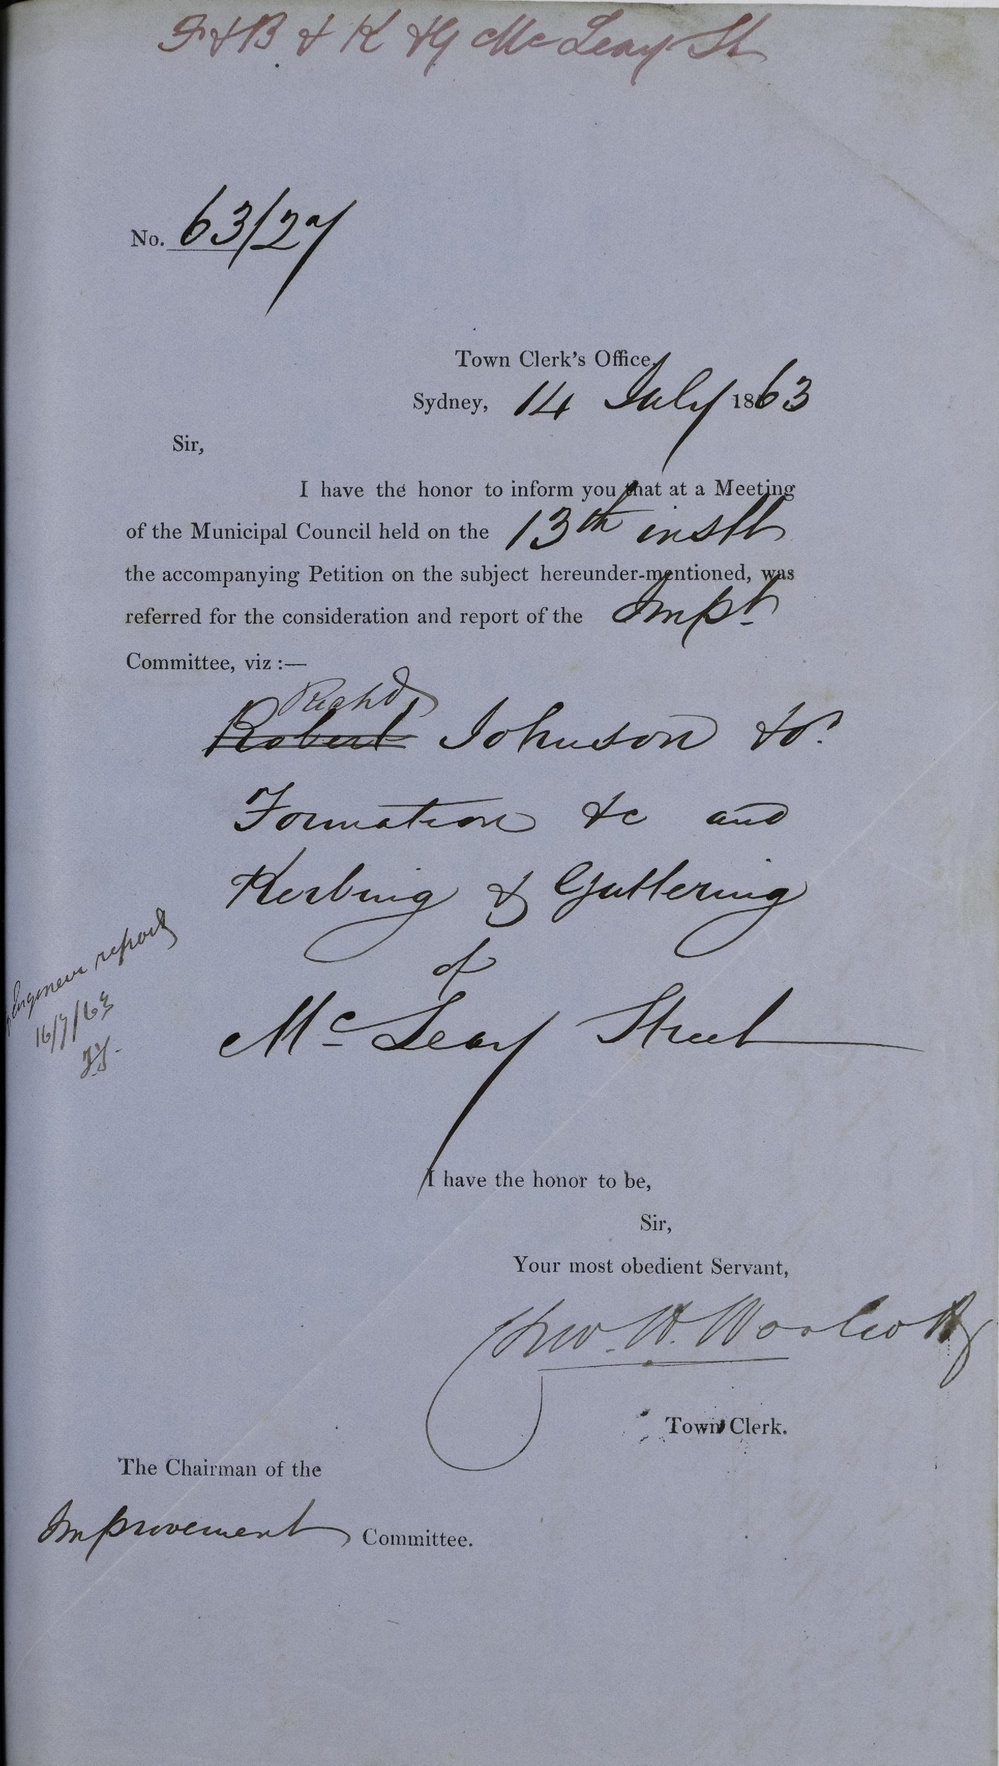 F & B & K & G McLeay St
No. 63/27
Town Clerk's Office,
Sydney, 14 July 1863
Sir,
I have the honor to inform you that at a Meeting
of the Municipal Council held on the 13th instt
the accompanying Petition on the subject hereunder-mentioned, was
referred for the consideration and report of the Impt
Committee, viz :—
Richd
Robert Johnson &c.
Formation &c and
Kerbing & Guttering
of
McLeay Street
report
16/7/63
I have the honor to be,
Sir,
Your most obedient Servant,
Chas. H. Woolcott
Town Clerk.
The Chairman of the
Improvement Committee.